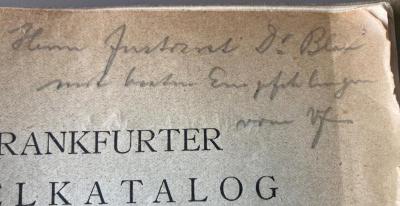 Herrn Justizrat Dr Blau
mit besten Empfehlungen
vom Vf
FRANKFURTER
ELKATALOG